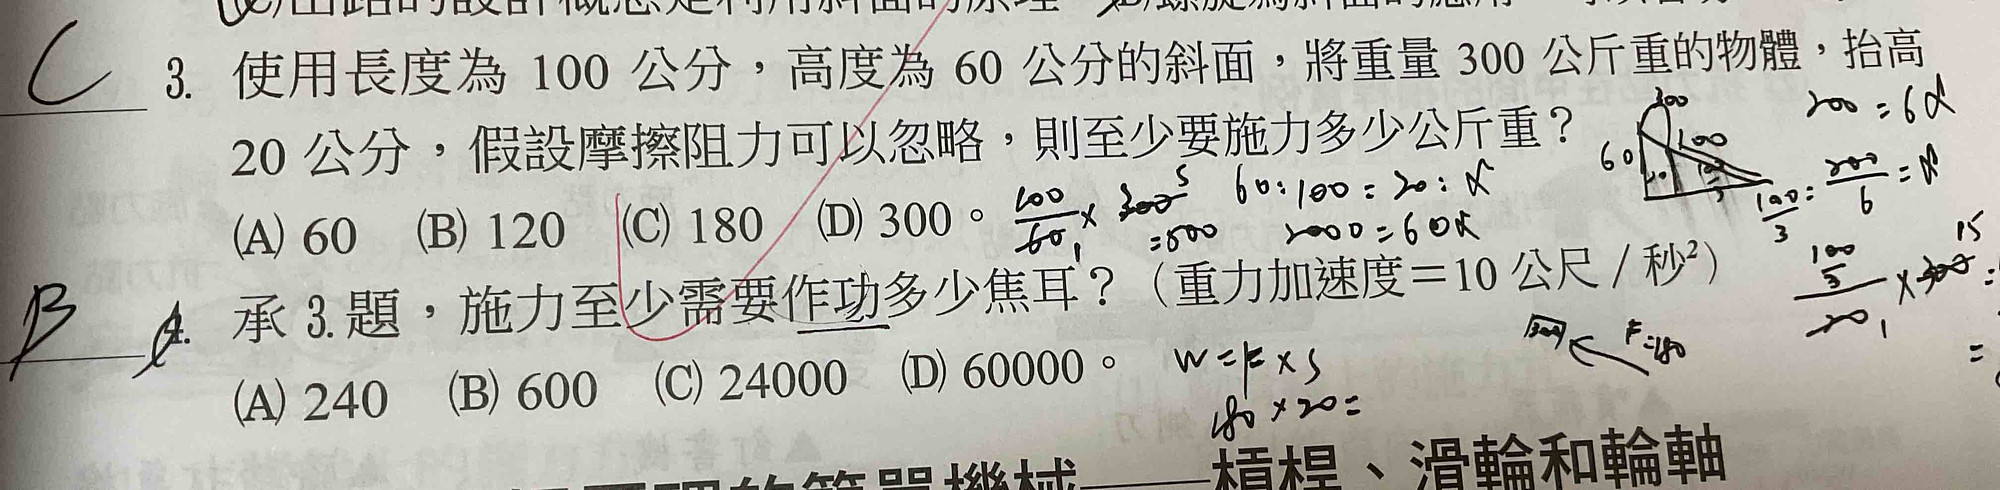 C 3. 使用長度為 100 公分，高度為 60 公分的斜面，將重量 300 公斤重的物體，抬高
20 公分，假設摩擦阻力可以忽略，則至少要施力多少公斤重？
(A) 60 (B) 120 (C) 180 (D) 300。
B 4. 承 3. 題，施力至少需要作功多少焦耳？（重力加速度＝10 公尺／秒²）
(A) 240 (B) 600 (C) 24000 (D) 60000。
300
60
100
200 = 6α
60 : 100 = 20 : α
2000 = 60α
= 500
100/3 = 200/6 = α
F=180
W = F × S
180 × 20 =
槓桿、滑輪和輪軸